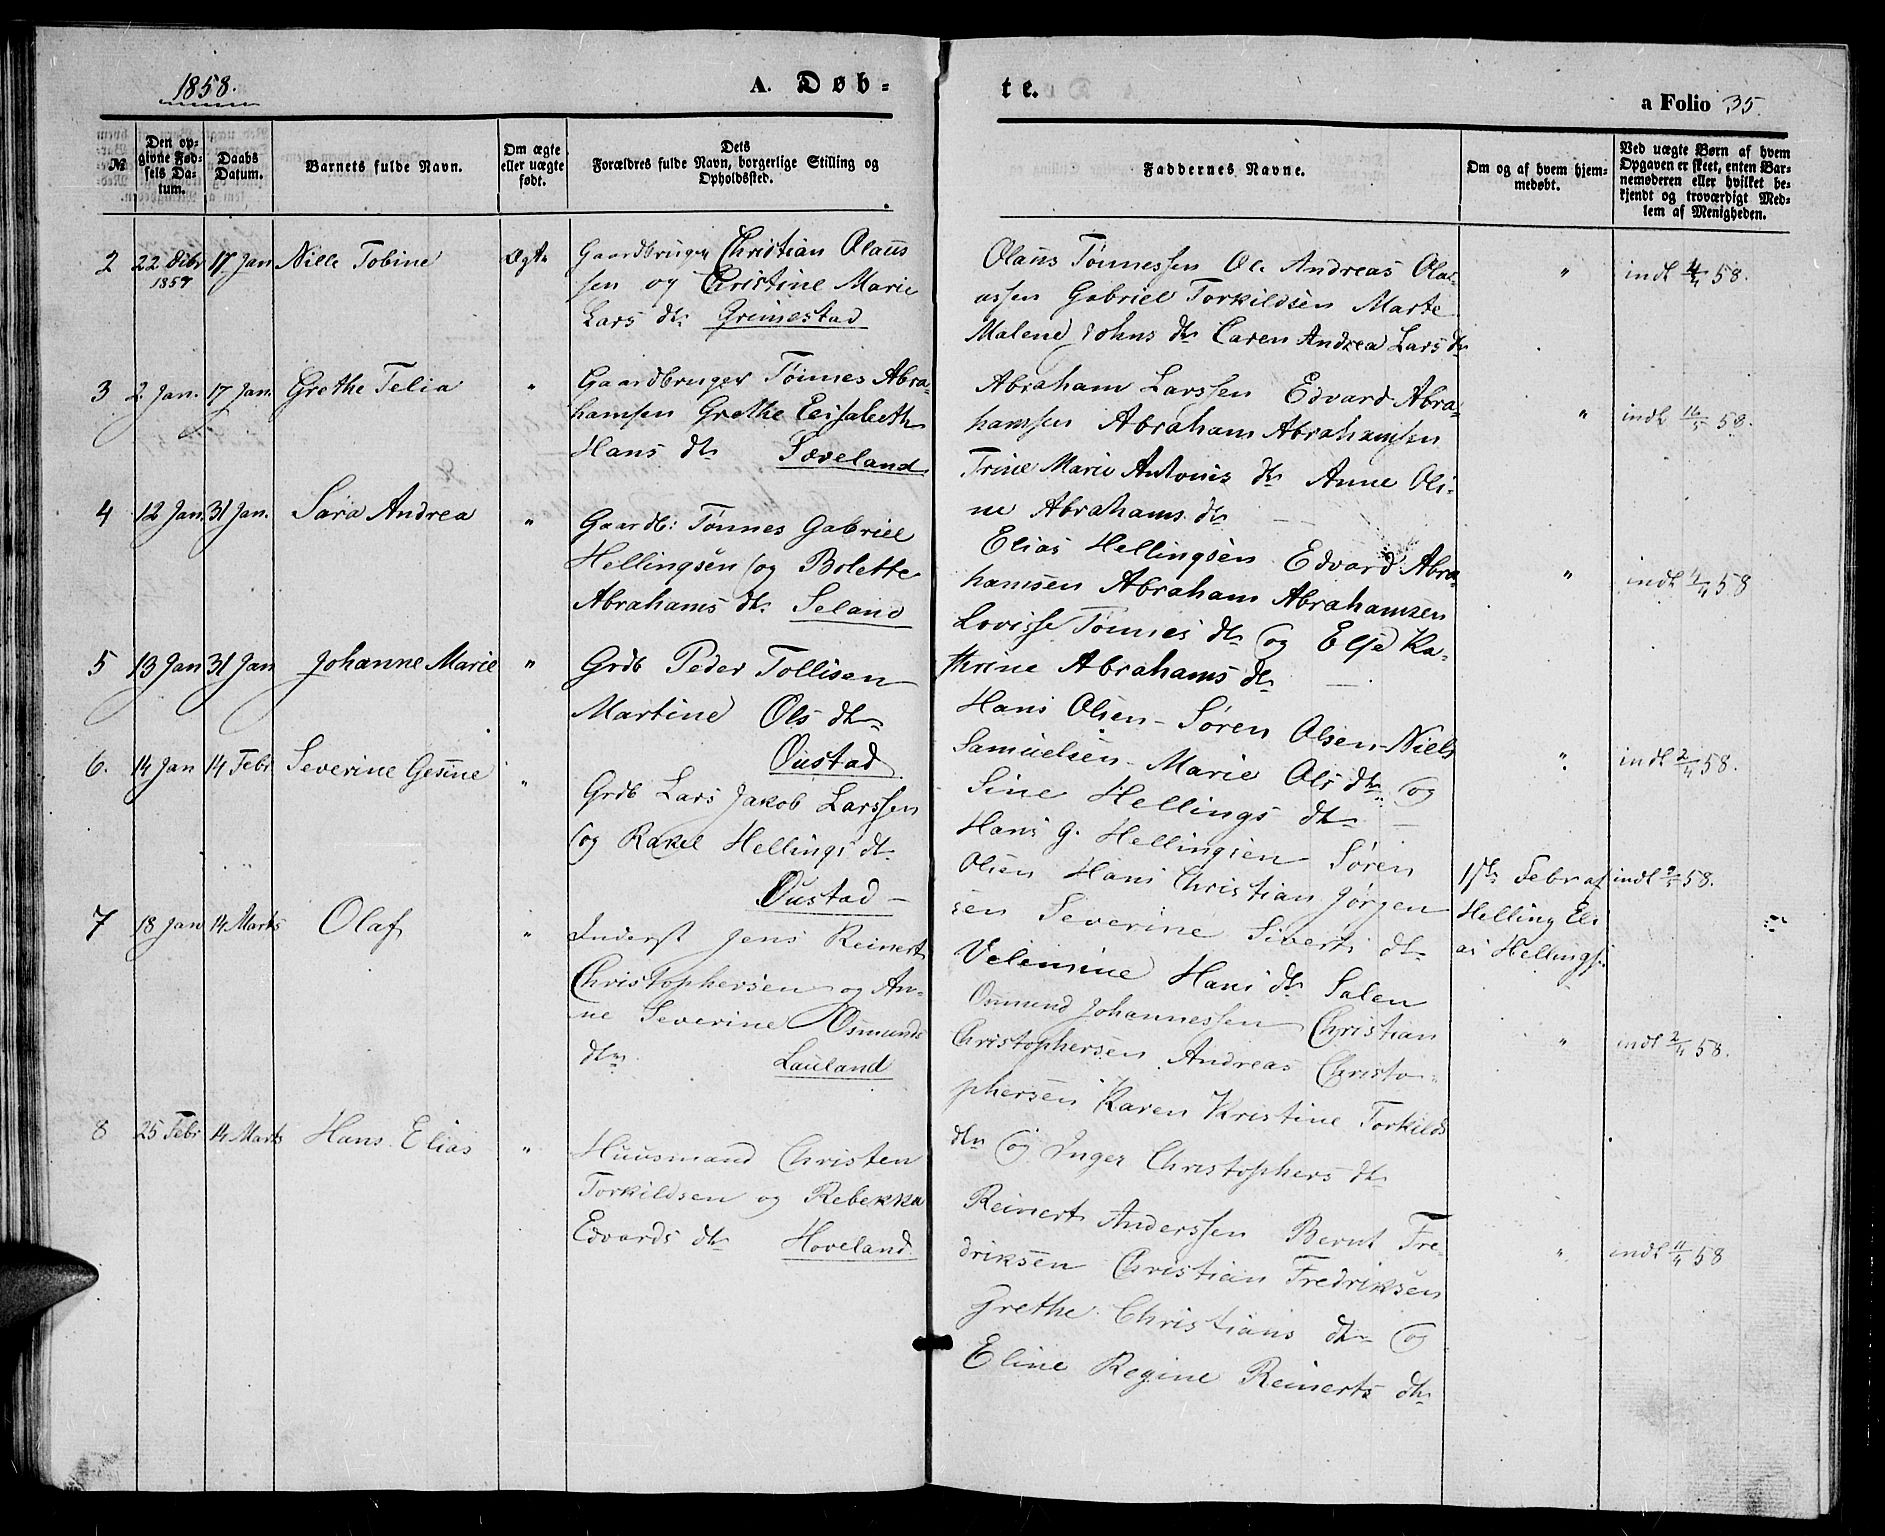 1858.
A. Døb-
te.
a Folio 35.
№
Den op-
givne Fød-
sels Da-
tum.
Daabs
Datum.
Barnets fulde Navn.
Om ægte
eller uægte
født.
Dets
Forældres fulde Navn, borgerlige Stilling og
Opholdssted.
Faddernes Navne.
Om og af hvem hjem-
medøbt.
Ved uægte Børn af hvem
Opgaven er skeet, enten Bar-
nemøderen eller hvilket be-
kjendt og troværdigt Med-
lem af Menigheden.
2
22 Dcbr
1857
17 Jan
Nille Tobine
Ægte
Gaardbruger Christian Olaus
sen og Christine Marie
Lars dtr Grimestad
Olaus Tønnessen Ole Andreas Ola-
ussen Gabriel Torkildsen Marte
Malene Johns dtr Caren Andrea Lars dtr
"
indt 4/4 58.
3
2 Jan.
17 Jan.
Grethe Telia
"
Gaardbruger Tønnes Abra-
hamsen Grethe Elisabeth
Hans dtr Sæveland
Abraham Larssen Edvard Abra-
hamssen Abraham Abrahamsen
Trine Marie Antonis dtr Anne Oli-
ne Abrahams dtr
"
indt 16/5 58.
4
12 Jan.
31 Jan.
Sara Andrea
"
Gaardb: Tønnes Gabriel
Hellingsen og Bolette
Abrahams dtr Seland
Elias Hellingsen Edvard Abra-
hamsen Abraham Abrahamsen
Lovisse Tønnes dtr og Else Ka-
thrine Abrahams dtr
"
indt 4/4 58
5
13 Jan
31 Jan
Johanne Marie
"
Grdb Peder Tollisen
Martine Ols dtr
Oustad
Hans Olsen - Søren Olsen - Niels
Samuelsen - Marie Ols dtr og
Sine Hellings dtr
"
indt 2/4 58.
6.
14 Jan
14 Febr
Severine Gesine
"
Grdb Lars Jakob Larssen
og Rakel Hellings dtr
Oustad
Hans G. Hellingsen Søren
Olsen Hans Christian Jørgen
sen Severine Siverts dtr
Velemine Hans dtr Salen
17de Febr af
Helling Eli
as Hellings:
indt 2/5 58.
7
18 Jan
14 Marts
Olaf
"
Inderst Jens Reinert
Christophersen og An-
ne Severine Osmunds
dtr Lauland
Osmund Johannessen Christian
Christophersen Andreas Christo-
phersen Karen Kristine Torkilds
dtr og Inger Christophers dtr
"
indt 2/4 58.
8
25 Febr
14 Marts
Hans Elias
"
Huusmand Christen
Torkildsen og Rebekka
Edvards dtr Hoveland
Reinert Anderssen Bernt Fre-
driksen Christian Fredriksen
Grethe Christians dtr og
Eline Regine Reinerts dtr
"
indt 11/4 58